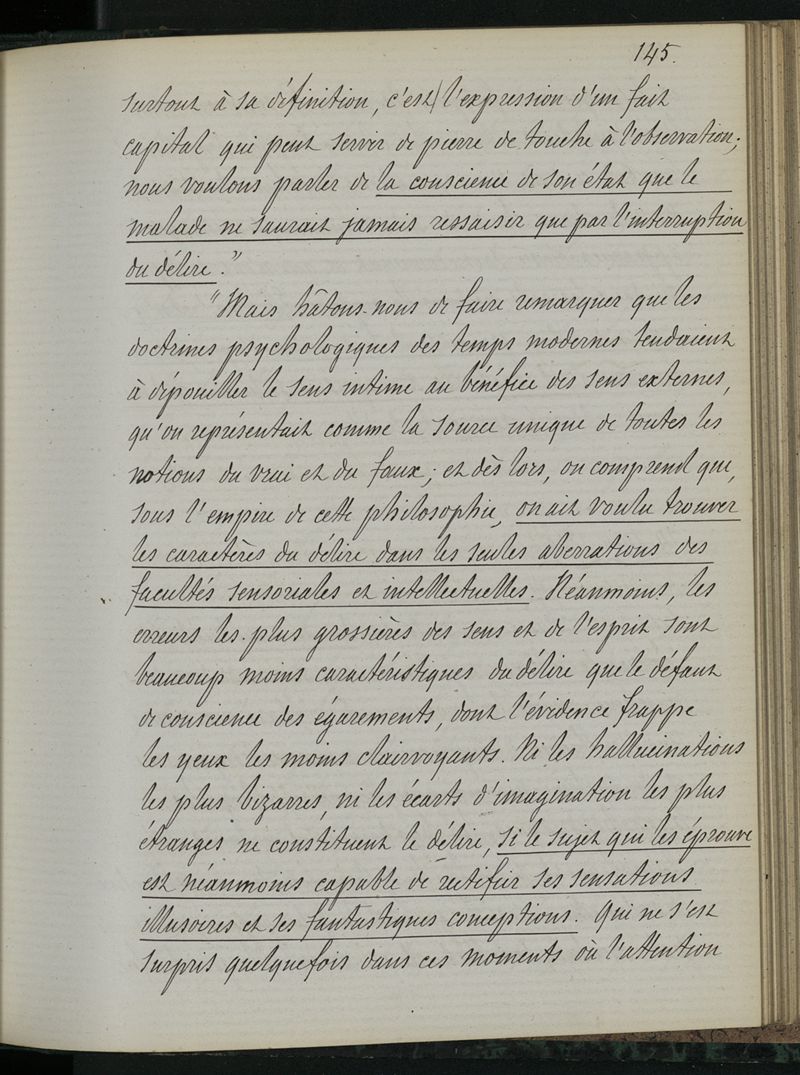 145.
surtout à sa définition, c'est l'expression d'un fait
capital qui peut servir de pierre de touche à l'observation;
nous voulons parler de la conscience de son état que le
malade ne saurait jamais ressaisir que par l'interruption
du délire."
"Mais hâtons-nous de faire remarquer que les
doctrines psychologiques des temps modernes tendaient
à dépouiller le sens intime au bénéfice des sens externes,
qu'on représentait comme la source unique de toutes les
notions du vrai et du faux; et dès lors, on comprend que,
sous l'empire de cette philosophie, on ait voulu trouver
les caractères du délire dans les seules aberrations des
facultés sensoriales et intellectuelles. Néanmoins, les
erreurs les plus grossières des sens et de l'esprit sont
beaucoup moins caractéristiques du délire que le défaut
de conscience des égarements, dont l'évidence frappe
les yeux les moins clairvoyants. Ni les hallucinations
les plus bizarres, ni les écarts d'imagination les plus
étranges ne constituent le délire, si le sujet qui les éprouve
est néanmoins capable de rectifier ses sensations
illusoires et ses fantastiques conceptions. Qui ne s'est
surpris quelquefois dans ces moments où l'attention